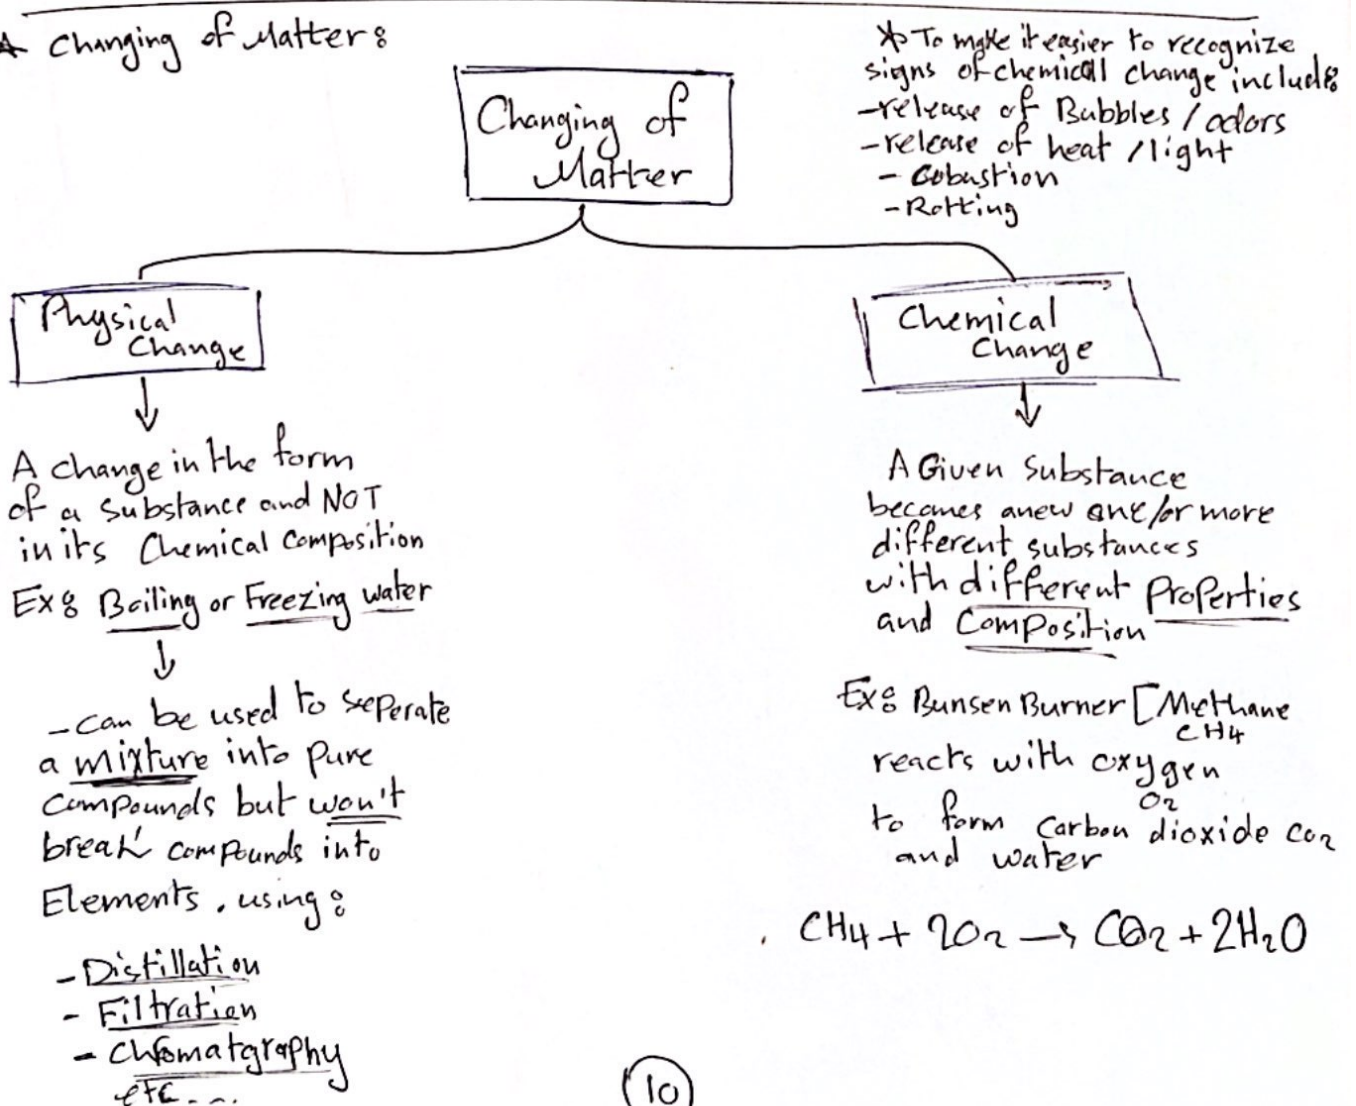 * Changing of Matter:
Changing of
Matter
* To make it easier to recognize
signs of chemical change include:
-release of Bubbles / odors
-release of heat / light
- Cobustion
- Rotting
Physical
Change
A change in the form
of a substance and NOT
in its Chemical Composition
Ex: Boiling or Freezing water
- can be used to seperate
a mixture into pure
compounds but won't
break compounds into
Elements. using:
- Distillation
- Filtration
- Chromatgraphy
etc....
Chemical
Change
A Given Substance
becomes a new one/or more
different substances
with different Properties
and Composition
Ex: Bunsen Burner [Methane
CH4
reacts with oxygen
O2
to form Carbon dioxide CO2
and water
CH4 + 2O2 → CO2 + 2H2O
10